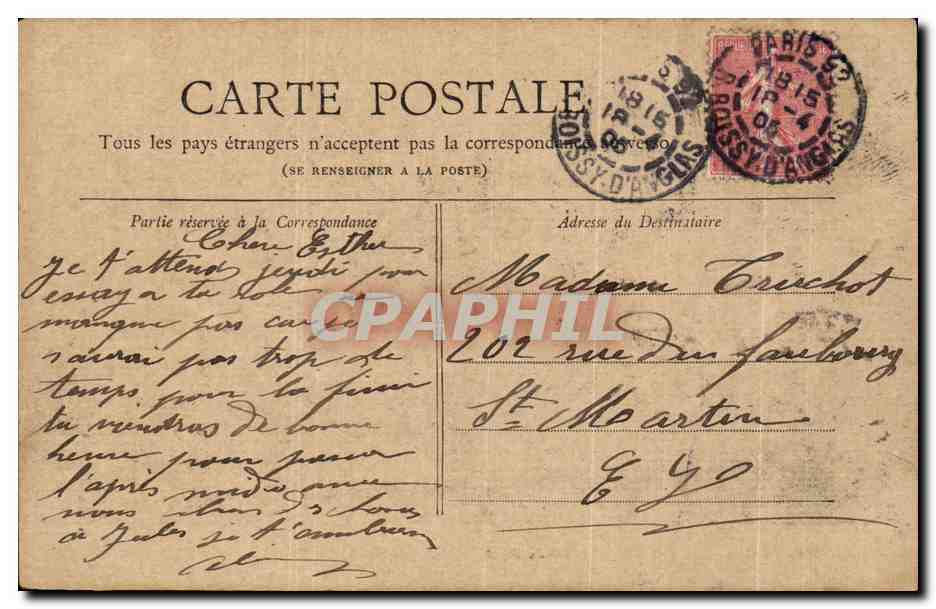 CARTE POSTALE
Tous les pays étrangers n'acceptent pas la correspondance au verso
(SE RENSEIGNER A LA POSTE)
PARIS 52
18 15
18 - 4
R. BOISSY-D'ANGLAS
PARIS 52
18 15
18 - 4
R. BOISSY-D'ANGLAS
Partie réservée à la Correspondance
Chere Esther
Je t'attend jeudi pour
essayer ta robe
manque pas car je
n'aurai pas trop de
temps pour la finir
tu viendras de bonne
heure pour passer
l'après midi avec
nous
à Jules je t'embrasse
Adresse du Destinataire
Madame Trichot
202 rue du faubourg
St Martin
E V
CPAPHIL